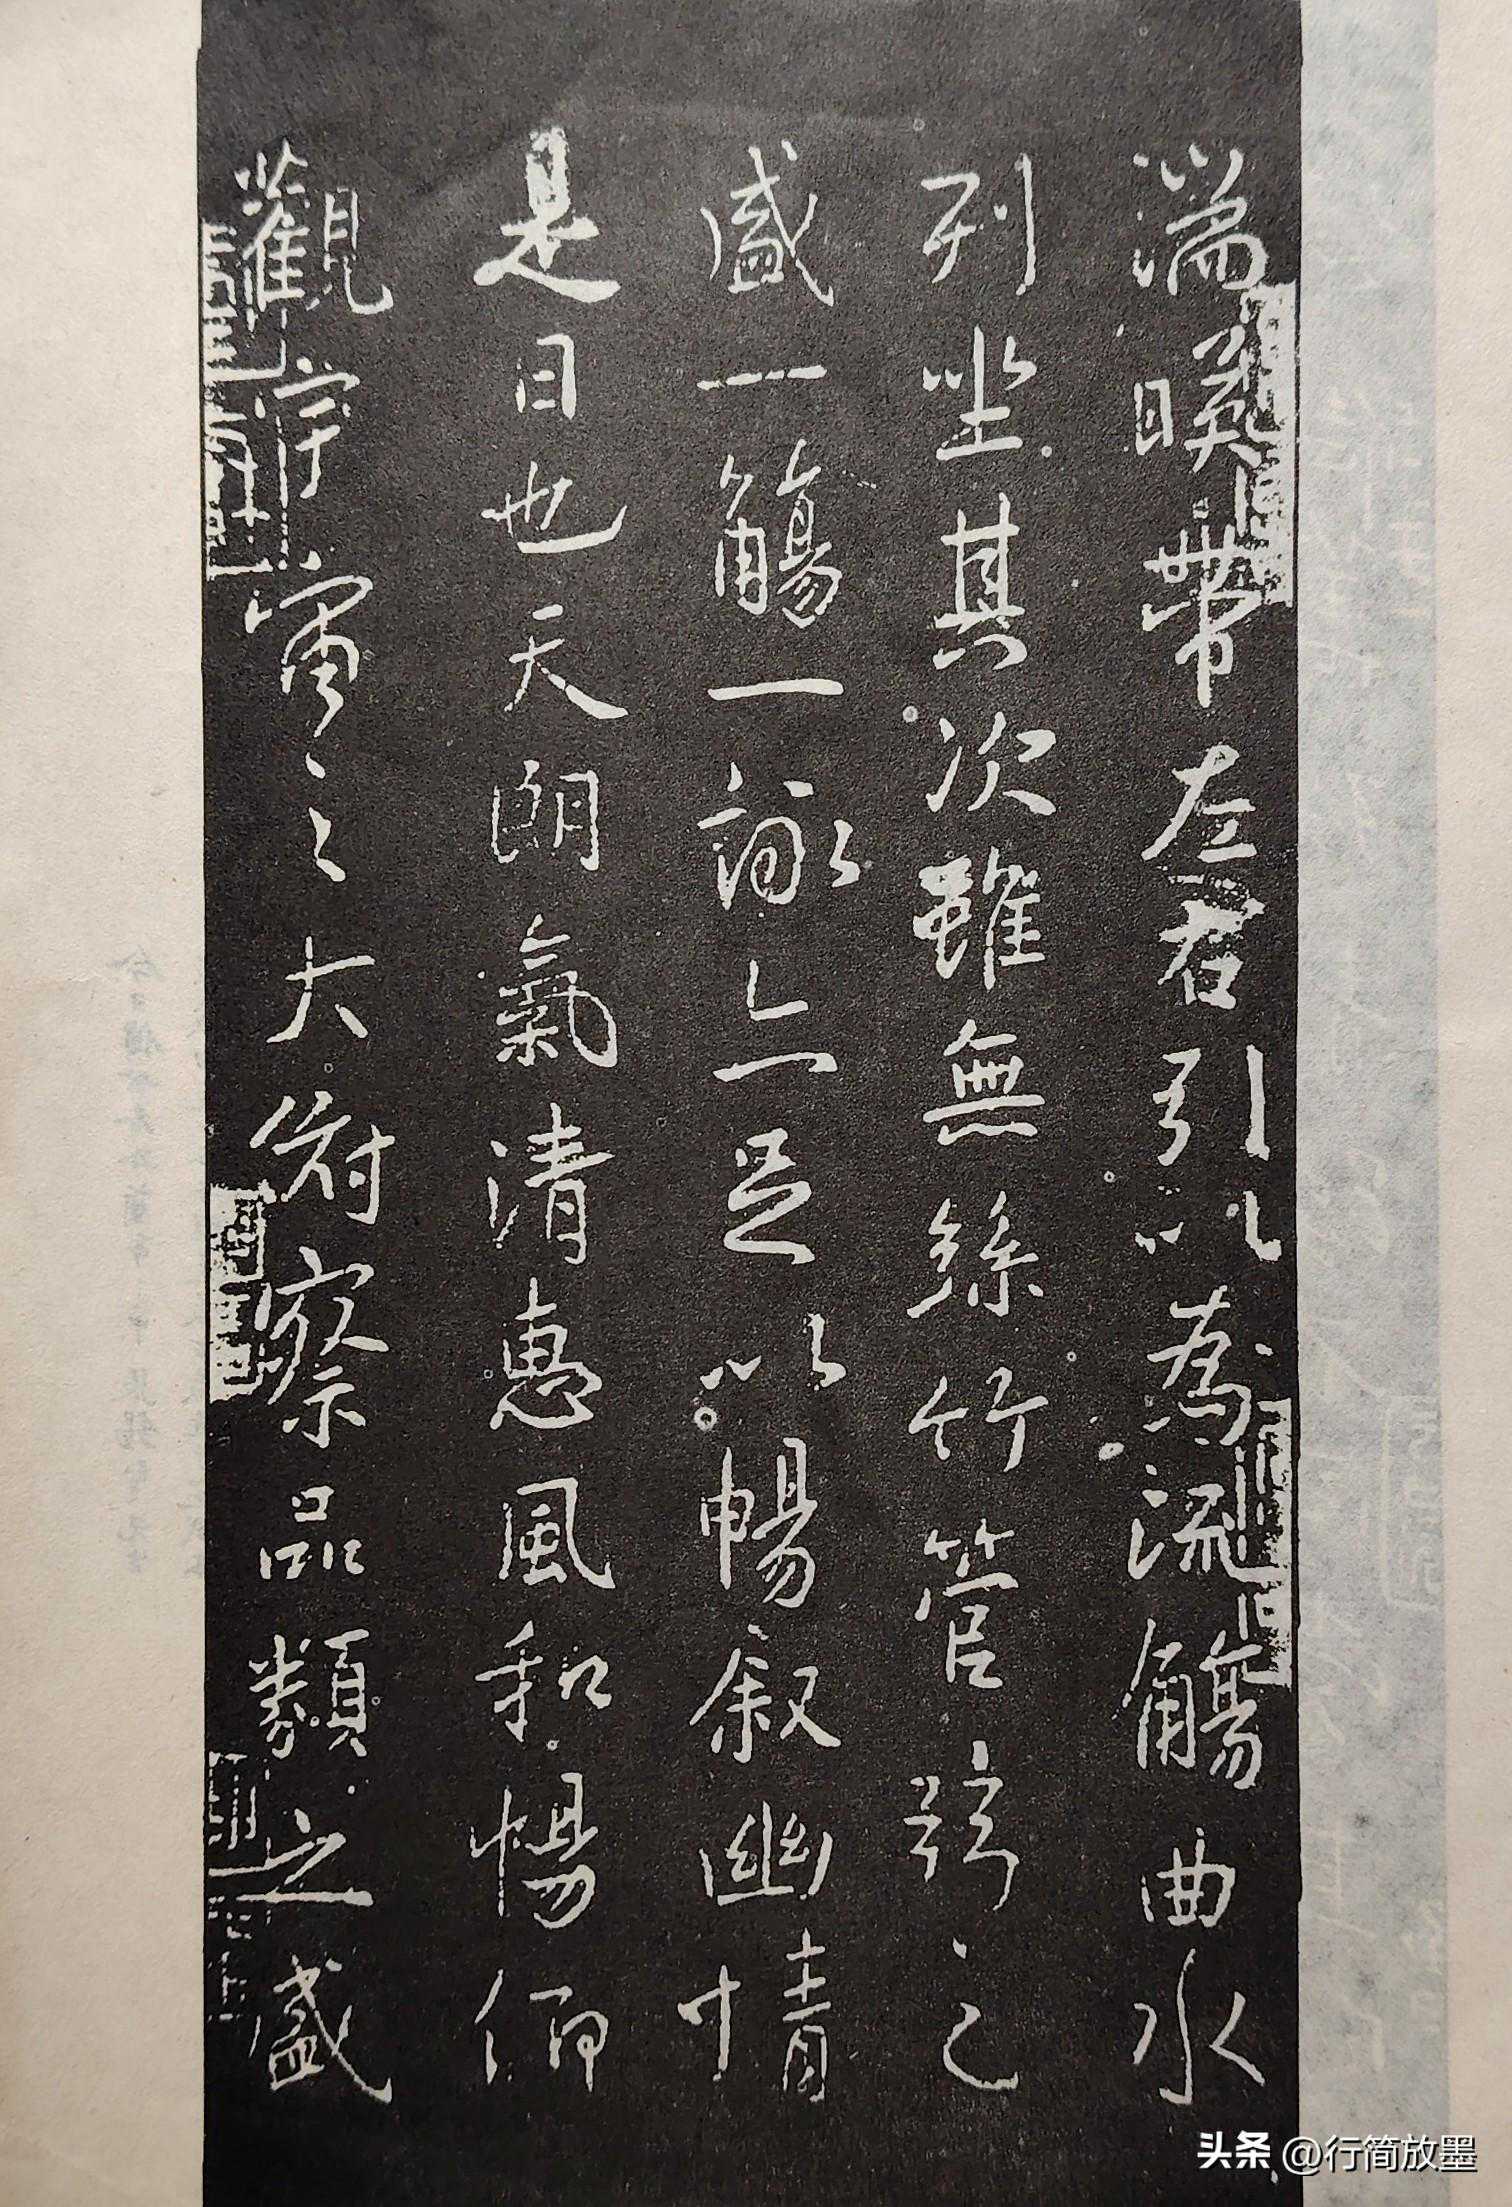 湍暎帶左右引以為流觴曲水
列坐其次雖無絲竹管弦之
盛一觴一詠亦足以暢敘幽情
是日也天朗氣清惠風和暢仰
觀宇宙之大俯察品類之盛
头条 @行简放墨